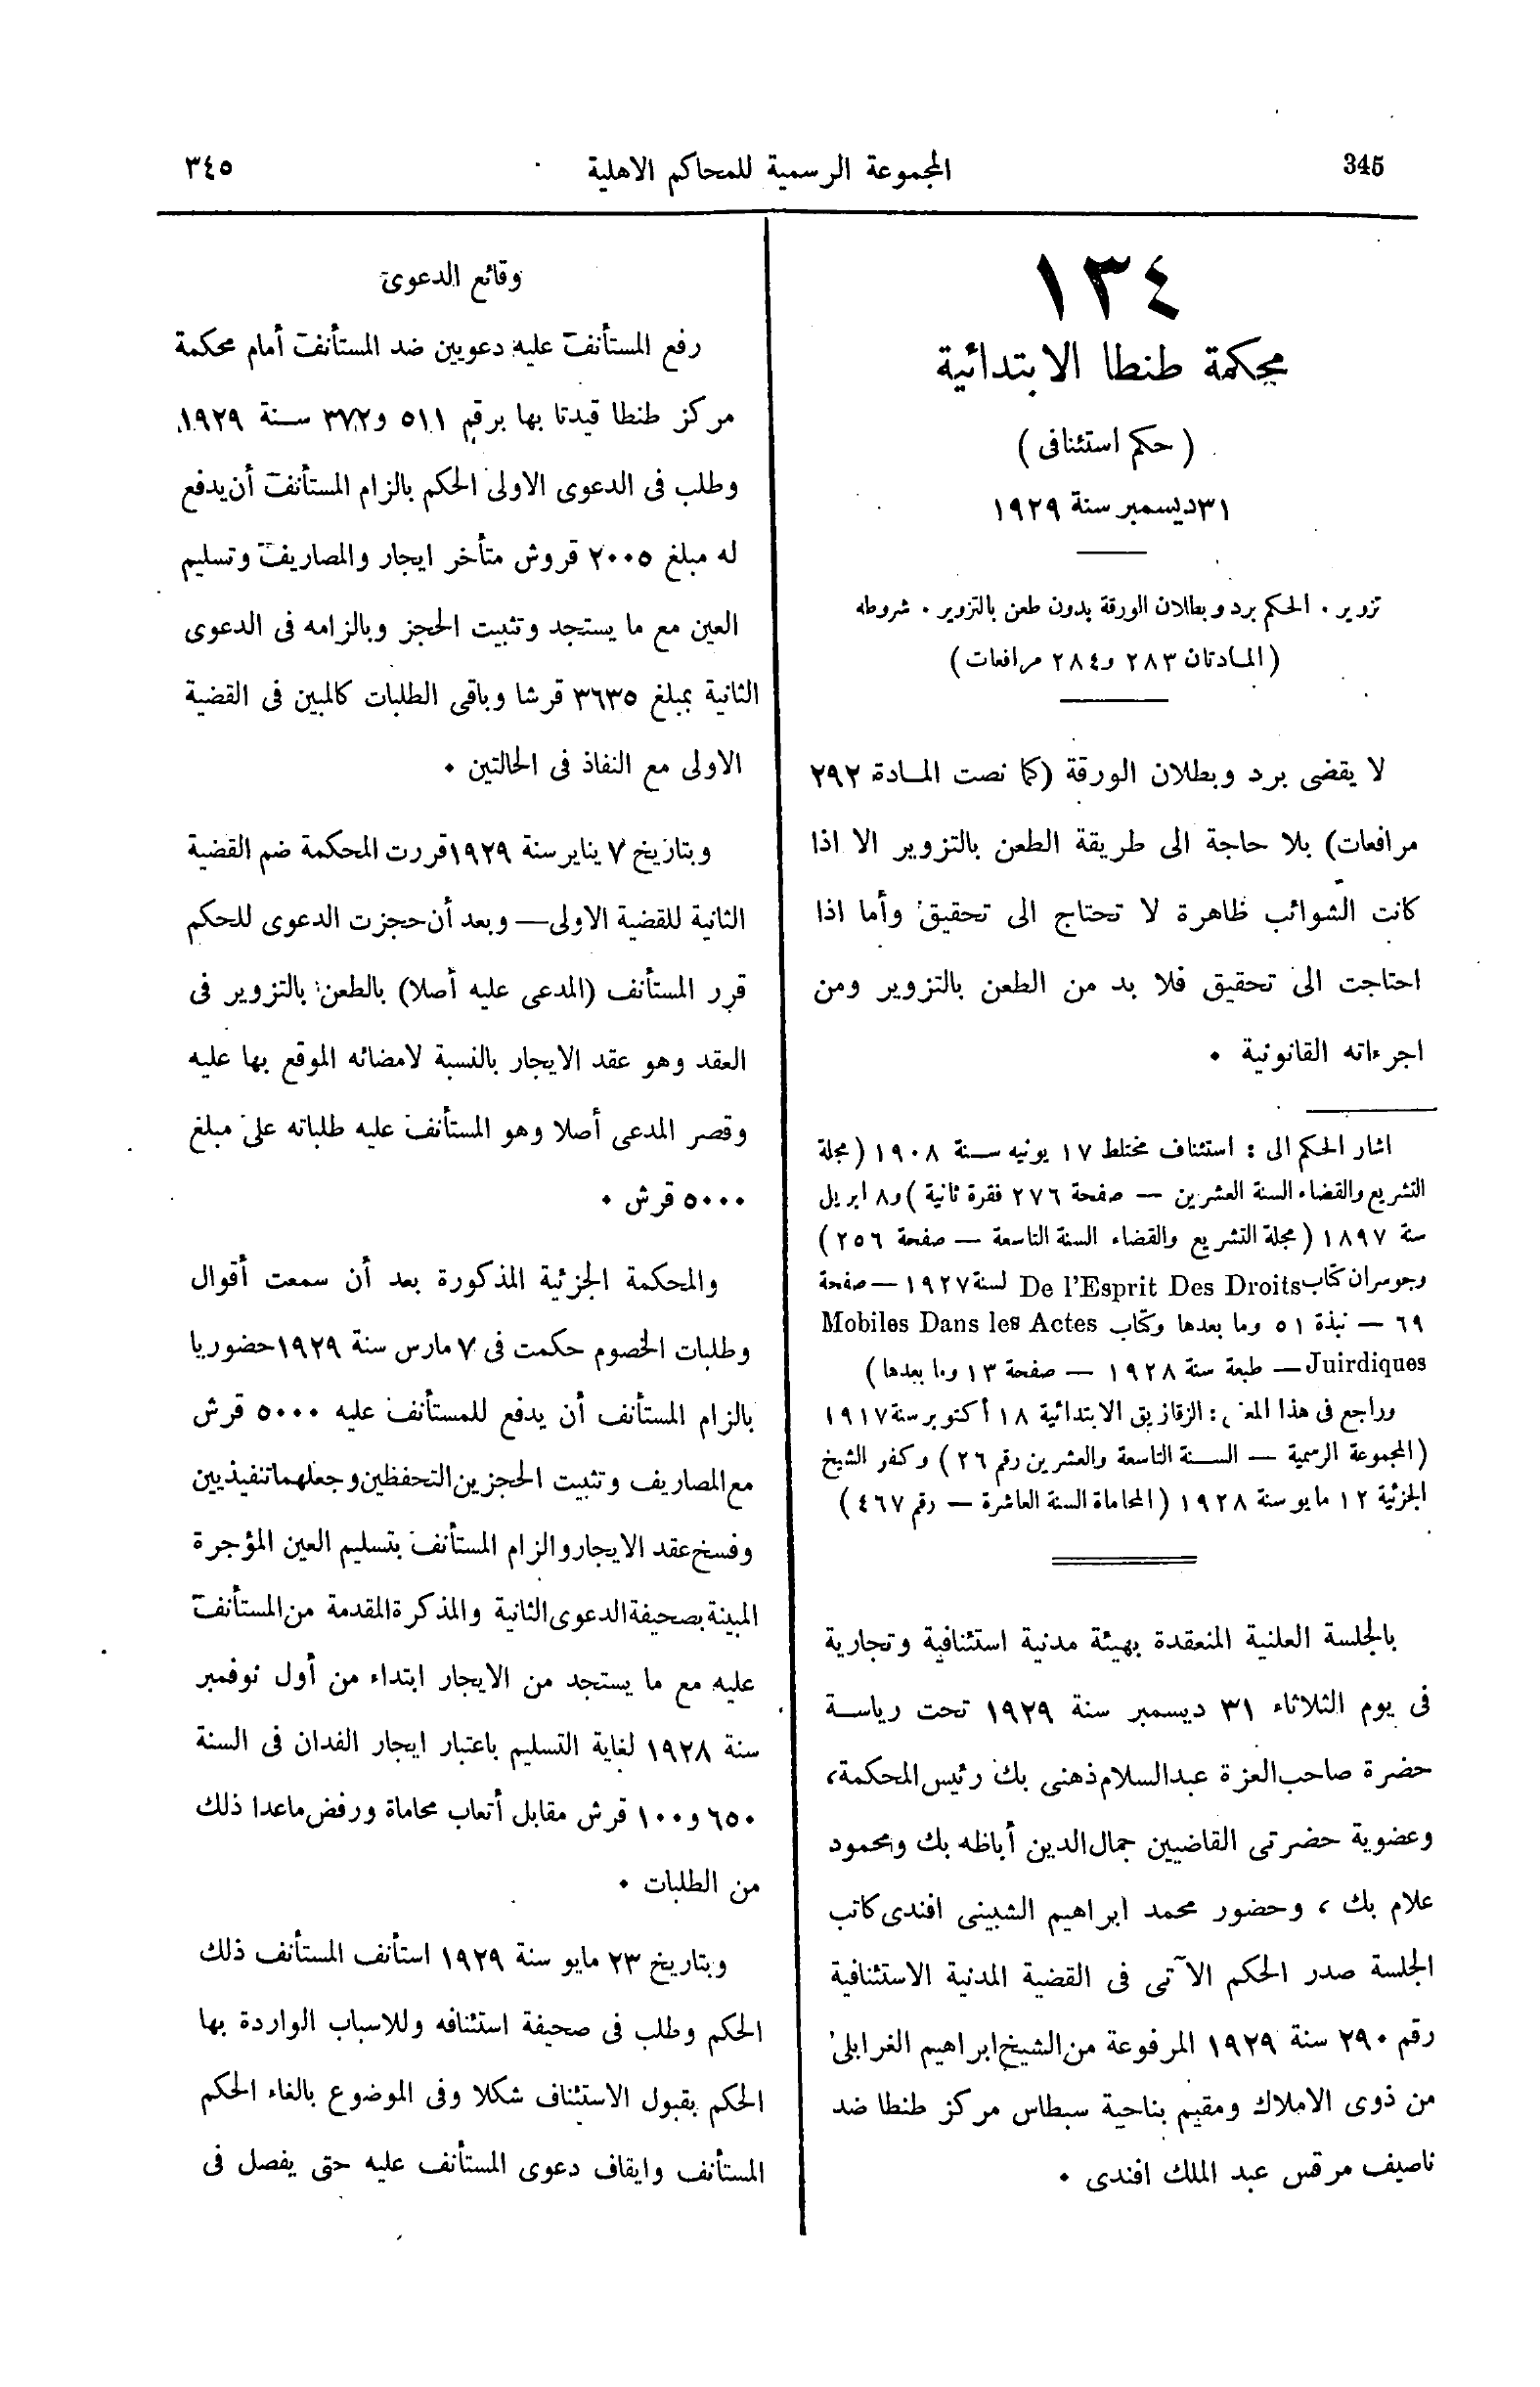 345
المجموعة الرسمية للمحاكم الاهلية
٣٤٥
١٣٤
محكمة طنطا الابتدائية
( حكم استئنافى )
٣١ ديسمبر سنة ١٩٢٩
تزوير . الحكم برد وبطلان الورقة بدون طعن بالتزوير . شروطه
(المادتان ٢٨٣ و٢٨٤ مرافعات)
لا يقضى برد وبطلان الورقة (كما نصت المادة ٢٩٢
مرافعات) بلا حاجة الى طريقة الطعن بالتزوير الا اذا
كانت الشوائب ظاهرة لا تحتاج الى تحقيق وأما اذا
احتاجت الى تحقيق فلا بد من الطعن بالتزوير ومن
اجرءاته القانونية .
اشار الحكم الى : استئناف مختلط ١٧ يونيه سنة ١٩٠٨ (مجلة
التشريع والقضاء السنة العشرين — صفحة ٢٧٦ فقرة ثانية ) و٨ ابريل
سنة ١٨٩٧ (مجلة التشريع والقضاء السنة التاسعة — صفحة ٢٥٦)
وجوسران كتاب De l'Esprit Des Droits لسنة ١٩٢٧ — صفحة
٦٩ — نبذة ٥١ وما بعدها وكتاب Mobiles Dans les Actes
Juirdiques — طبعة سنة ١٩٢٨ — صفحة ١٣ وما بعدها)
وراجع فى هذا المعنى : الزقازيق الابتدائية ١٨ أكتوبر سنة ١٩١٧
(المجموعة الرسمية — السنة التاسعة والعشرين رقم ٢٦) وكفر الشيخ
الجزئية ١٢ مايو سنة ١٩٢٨ (المحاماة السنة العاشرة — رقم ٤٦٧)
بالجلسة العلنية المنعقدة بهيئة مدنية استئنافية وتجارية
فى يوم الثلاثاء ٣١ ديسمبر سنة ١٩٢٩ تحت رياسة
حضرة صاحب العزة عبد السلام ذهنى بك رئيس المحكمة،
وعضوية حضرتى القاضيين جمال الدين أباظه بك ومحمود
علام بك ، وحضور محمد ابراهيم الشبينى افندى كاتب
الجلسة صدر الحكم الآتى فى القضية المدنية الاستئنافية
رقم ٢٩٠ سنة ١٩٢٩ المرفوعة من الشيخ ابراهيم الغرابلى
من ذوى الاملاك ومقيم بناحية سبطاس مركز طنطا ضد
ناصيف مرقس عبد الملك افندى .
وقائع الدعوى
رفع المستأنف عليه دعويين ضد المستأنف أمام محكمة
مركز طنطا قيدتا بها برقم ٥١١ و٣٧٢ سنة ١٩٢٩
وطلب فى الدعوى الاولى الحكم بالزام المستأنف أن يدفع
له مبلغ ٢٠٠٥ قروش متأخر ايجار والمصاريف وتسليم
العين مع ما يستجد وتثبيت الحجز وبالزامه فى الدعوى
الثانية بمبلغ ٣٦٣٥ قرشا وباقى الطلبات كالمبين فى القضية
الاولى مع النفاذ فى الحالتين .
وبتاريخ ٧ يناير سنة ١٩٢٩ قررت المحكمة ضم القضية
الثانية للقضية الاولى — وبعد أن حجزت الدعوى للحكم
قرر المستأنف (المدعى عليه أصلا) بالطعن بالتزوير فى
العقد وهو عقد الايجار بالنسبة لامضائه الموقع بها عليه
وقصر المدعى أصلا وهو المستأنف عليه طلباته على مبلغ
٥٠٠٠ قرش .
والمحكمة الجزئية المذكورة بعد أن سمعت أقوال
وطلبات الخصوم حكمت فى ٧ مارس سنة ١٩٢٩ حضوريا
بالزام المستأنف أن يدفع للمستأنف عليه ٥٠٠٠ قرش
مع المصاريف وتثبيت الحجزين التحفظين وجعلهما تنفيذيين
وفسخ عقد الايجار والزام المستأنف بتسليم العين المؤجرة
المبينة بصحيفة الدعوى الثانية والمذكرة المقدمة من المستأنف
عليه مع ما يستجد من الايجار ابتداء من أول نوفمبر
سنة ١٩٢٨ لغاية التسليم باعتبار ايجار الفدان فى السنة
٦٥٠ و١٠٠ قرش مقابل أتعاب محاماة ورفض ماعدا ذلك
من الطلبات .
وبتاريخ ٢٣ مايو سنة ١٩٢٩ استأنف المستأنف ذلك
الحكم وطلب فى صحيفة استئنافه وللاسباب الواردة بها
الحكم بقبول الاستئناف شكلا وفى الموضوع بالغاء الحكم
المستأنف وايقاف دعوى المستأنف عليه حتى يفصل فى